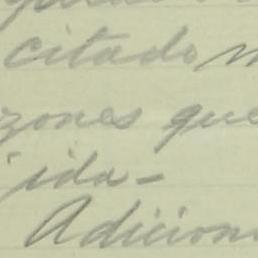 citado
zones que
ida-
Adicion